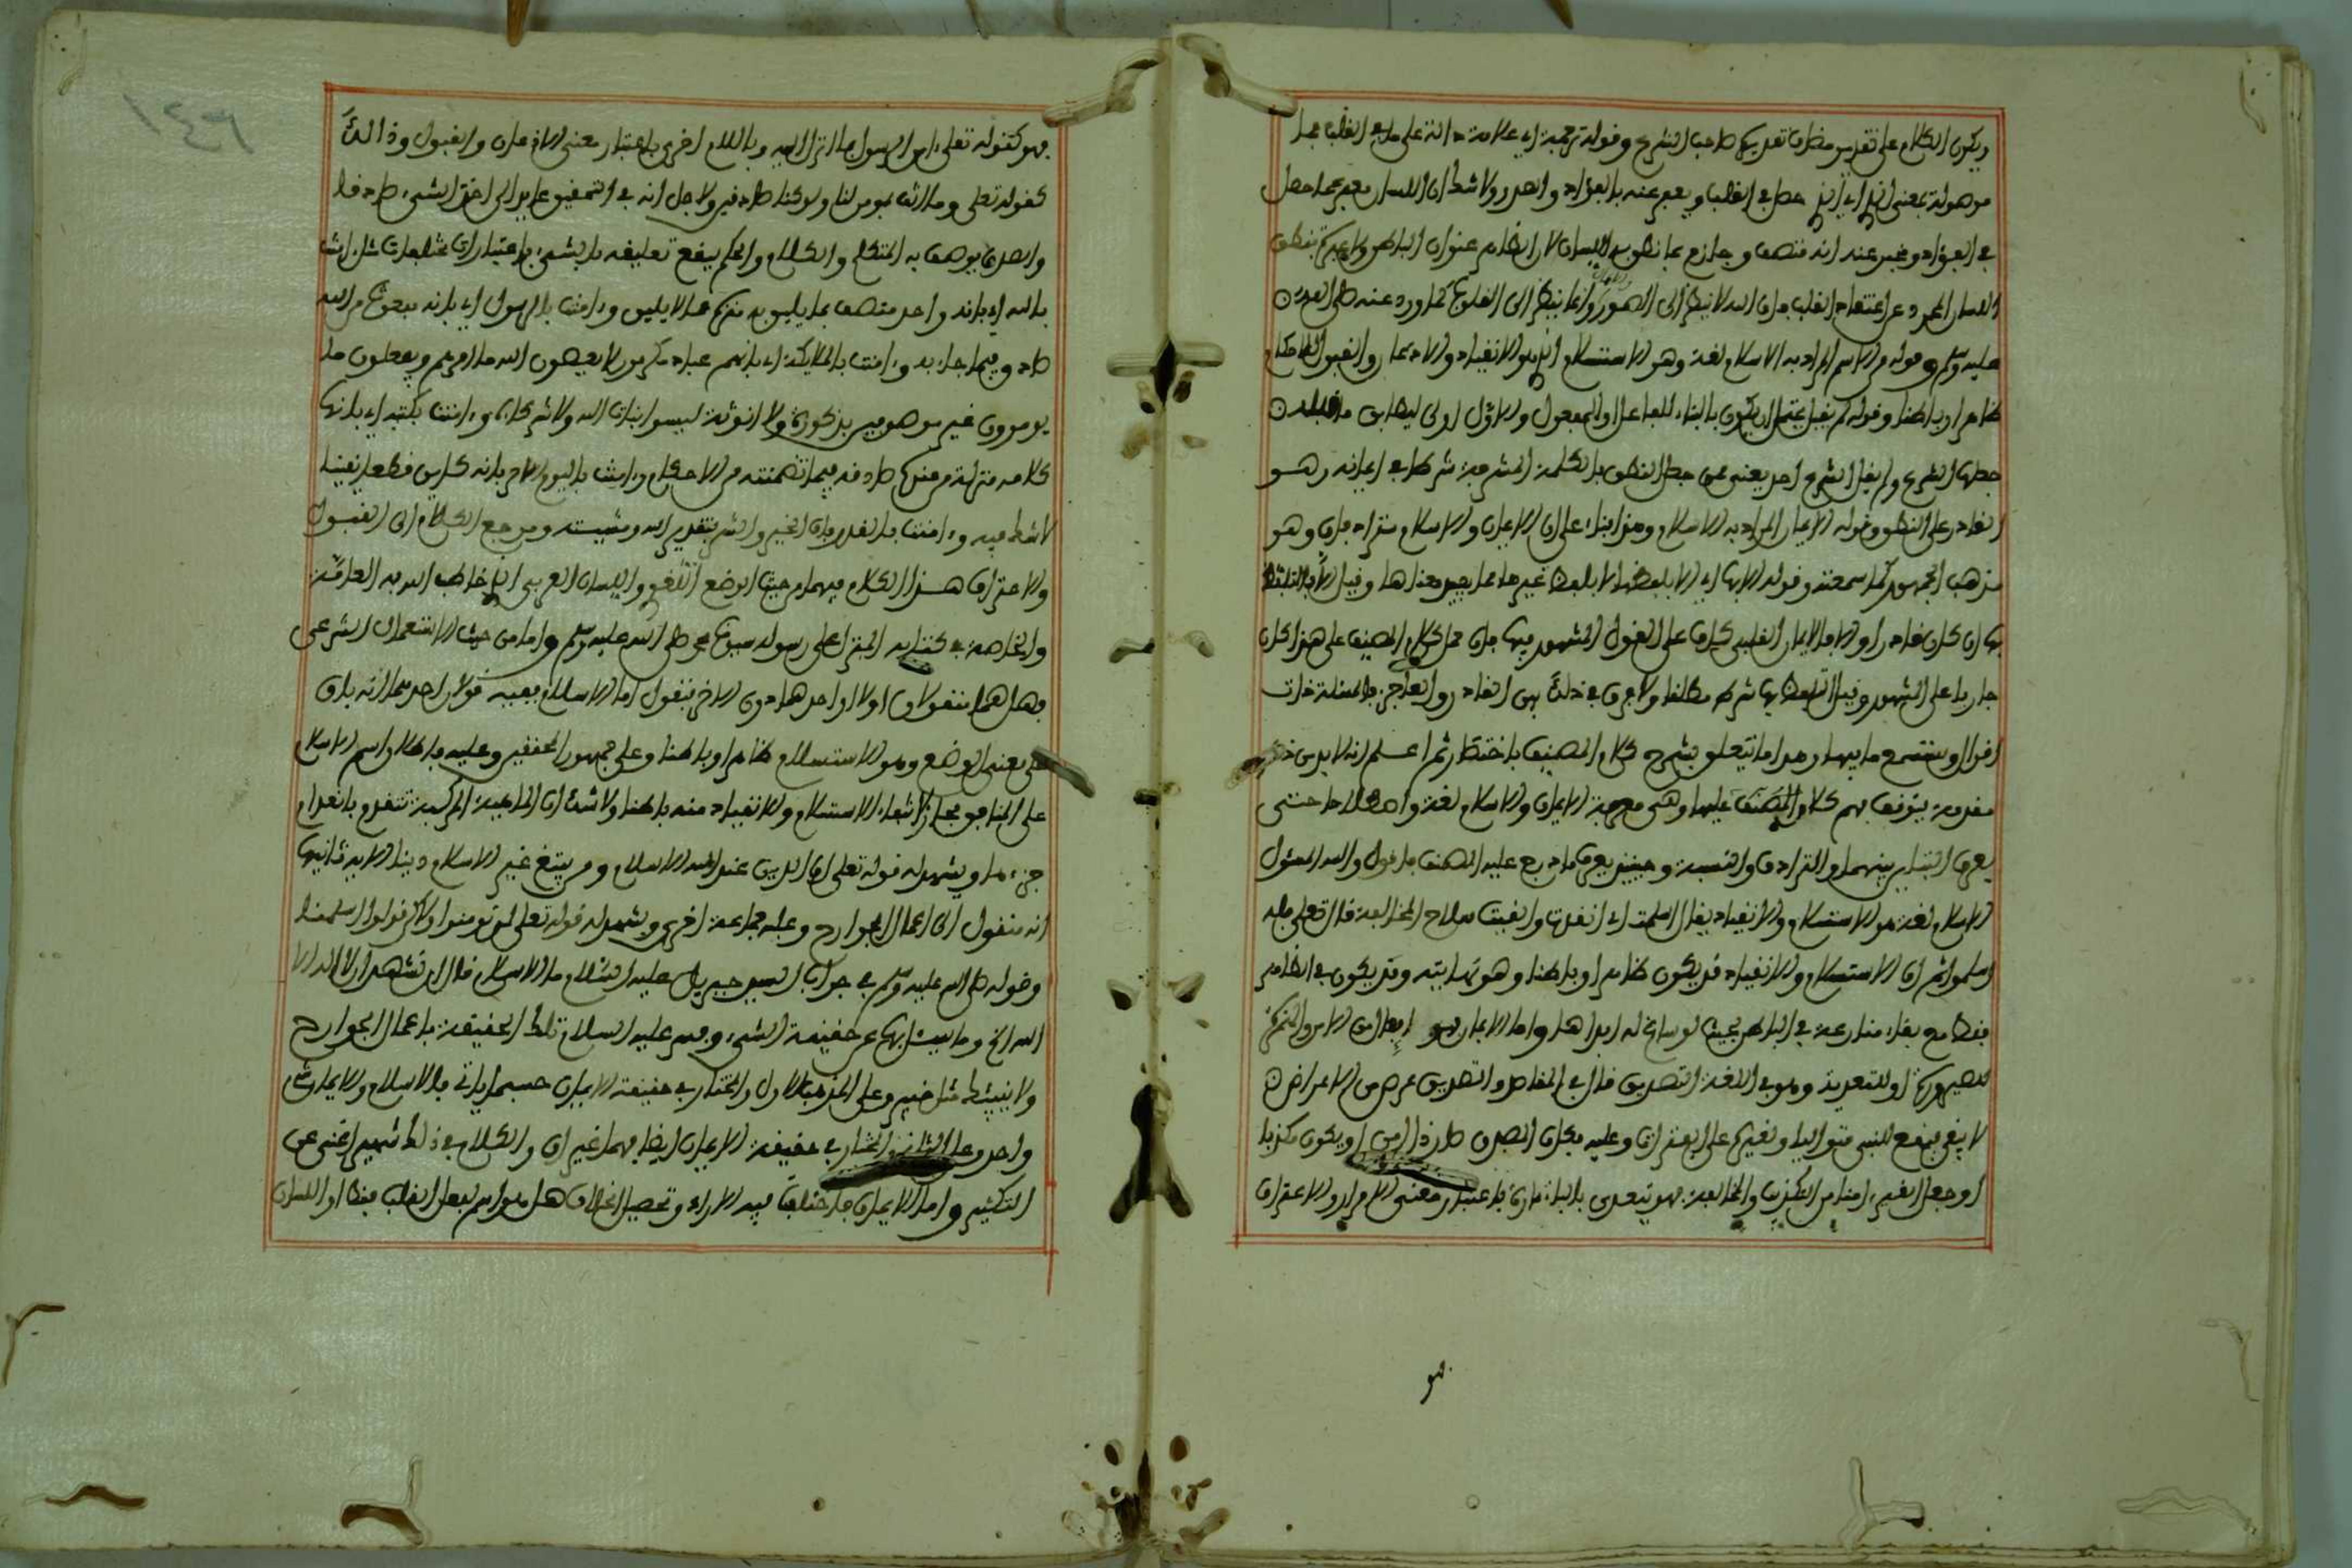 ويكون الكلام على تقدير مضاف تقديره صاحب الشرح وقوله ترجمة اي علامة دالة على ما في القلب فما
موصولة بمعنى الذي اي الذي حصل في القلب ويعبر عنه بالفؤاد والصدر ولا شك ان اللسان معبر عما حصل
في الفؤاد ومخبر عنه انه متصف وجازم بما نطق به اللسان لان الظاهر عنوان الباطن ولا عبرة بنطق
اللسان المجرد عن اعتقاد القلب فان الله لا ينظر الى الصور وانما ينظر الى القلوب كما ورد عنه صلى الله
عليه وسلم وقوله من الاسم المراد به الاسلام لغة وهو الاستسلام الذي هو الانقياد والاذعان والقبول
ظاهرا وباطنا وقوله لم يقبل يحتمل ان يكون بالبناء للفاعل او المفعول والاول اولى ليطابق ما قبله
جعلها الشرع ولم يقبل الشرع احد يعني حتى جعل النطق بالكلمة المشرفة شرطا في ايمانه وهو
القادر على النطق وقوله الايمان المراد به الاسلام وهذا بناء على ان الايمان والاسلام مترادفان وهو
مذهب الجمهور كما سمعته وقوله الا بها اي الا بلفظها لا بلفظ غيرها مما يفيد معناها وقيل لا بد التلفظ
بها ان كان قادرا والا فالايمان القلبي كاف على القول المشهور فيها فان حمل كلام المصنف على هذا كان
جاريا على المشهور وقيل التلفظ بها شرط مطلقا ولا فرق في ذلك بين القادر والعاجز فالمسئلة ذات
اقوال وستسمع ما فيها وهذا ما يتعلق بشرح كلام المصنف باختصار ثم اعلم انه لا بد من ذكر
مقدمة يتوقف فهم كلام المصنف عليها وهي معرفة الايمان والاسلام لغة واصطلاحا حتى
يعرف التباين بينهما والترادف والنسبة وحينئذ يعرف ما درج عليه المصنف فاقول والله المسئول
الاسلام لغة هو الاستسلام والانقياد يقال اسلمت اي انقدت والقيت سلاح المخالفة قال تعلى فله
اسلموا ثم ان الاستسلام والانقياد قد يكون ظاهرا وباطنا وهو نهايته وقد يكون في الظاهر
فقط مع بقاء منازعة في الباطن بحيث لو ساغ له ابداها واما الايمان فهو افعال من الامن والهمزة
للصيرورة او للتعدية وهو في اللغة التصديق قال في المقاصد والتصديق عرض من الاعراض
لا يبقى فيقع للنبي متواليا ولغيره على الفترات وعليه فكان المصدق صار ذا امن ان يكون مكذبا
او جعل الغير ءامنا من التكذيب والمخالفة فهو يتعدى بالباء تارة باعتبار معنى الاقرار والاعتراف
فهو
١٤٦
فهو كقوله تعلى ءامن الرسول بما انزل اليه وباللام اخرى باعتبار معنى الاذعان والقبول وذالك
كقوله تعلى وما انت بمؤمن لنا ولو كنا صادقين ولاجل انه في التحقيق عائد الى اخذ الشيء صادقا
والصدق يوصف به المتكلم والكلام والحكم يقع تعليقه بالشيء باعتبارات مختلفات مثل ءامنت
بالله اي بانه واحد متصف بما يليق به منزه عما لا يليق وءامنت بالرسول اي بانه مبعوث من الله
صادق فيما جاء به وءامنت بالملائكة اي بانهم عباد مكرمون لا يعصون الله ما امرهم ويفعلون ما
يومرون غير موصوفين بذكورة ولا انوثة ليسوا بنات الله ولا شركاءه وءامنت بكتبه اي بانها
كلامه منزلة من عنده صادقة فيما تضمنته من الاحكام وءامنت باليوم الاخر بانه كائن قطعا يقينا
لا شك فيه وءامنت بالقدر بان الخير والشر بتقدير الله ومشيئته ومرجع الكلام الى القبول
والاعتراف هذا الكلام فيهما من حيث الوضع اللغوي واللسان العربي الذي خاطب الله به العامة
والخاصة في كتابه المنزل على رسوله سيدنا محمد صلى الله عليه وسلم واما من حيث الاستعمال الشرعي
فهل هما منقولان اولا او احدهما دون الاخر فنقول اما الاسلام ففيه قولان احدهما انه باق
على معنى الوضع وهو الاستسلام ظاهرا وباطنا وعلى جمهور المحققين وعليه فاطلاق اسم الاسلام
على المنافق مجاز لانتفاء الاستسلام والانقياد منه باطنا ولا شك ان الماهية المركبة تنعدم بانعدام
جزء ما ويشهد له قوله تعلى ان الدين عند الله الاسلام ومن يبتغ غير الاسلام دينا الاية ثانيها
انه منقول الى اعمال الجوارح وعليه جماعة اخرى ويشهد له قوله تعلى لم تومنوا ولكن قولوا اسلمنا
وقوله صلى الله عليه وسلم في جواب السيد جبريل عليه السلام ما الاسلام قال ان تشهد ان لا اله الا
الله الخ وما يسئل بها عن حقيقة الشيء وفسر عليه السلام تلك الحقيقة باعمال الجوارح
ولا ينبئك مثل خبير وعلى المذهب الاول والمختار في حقيقة الايمان حسبما ياتي فالاسلام والايمان شيء
واحد وعلى الثاني والمختار في حقيقة الايمان ايضا فهما غيران والكلام في ذلك شهير اغنى عن
التكثير واما الايمان فاختلف فيه الاراء وتحصيل الخلاف هل هو اسم لفعل القلب فقط او اللسان